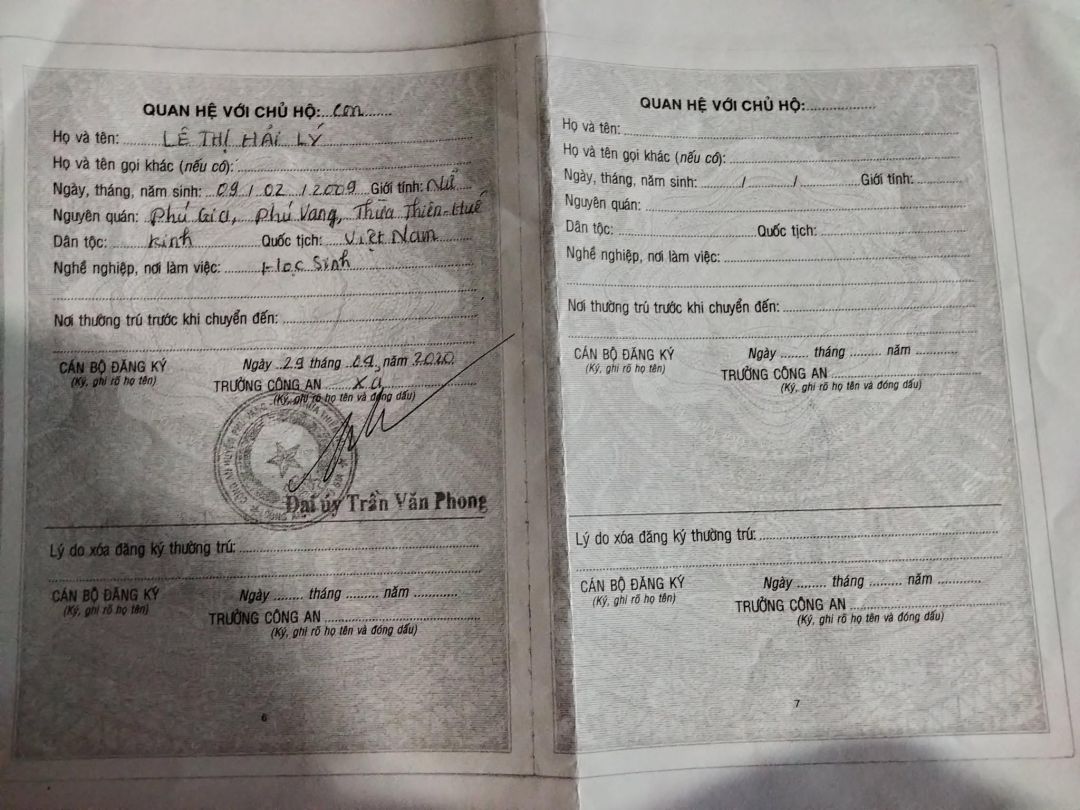 QUAN HỆ VỚI CHỦ HỘ: con
Họ và tên: LÊ THỊ HẢI LÝ
Họ và tên gọi khác (nếu có):
Ngày, tháng, năm sinh: 09 / 02 / 2009 Giới tính: Nữ
Nguyên quán: Phú Gia, Phú Vang, Thừa Thiên-Huế
Dân tộc: Kinh Quốc tịch: Việt Nam
Nghề nghiệp, nơi làm việc: Học Sinh
Nơi thường trú trước khi chuyển đến:
CÁN BỘ ĐĂNG KÝ
(Ký, ghi rõ họ tên)
Ngày 29 tháng 09, năm 2020
TRƯỞNG CÔNG AN xã
(Ký, ghi rõ họ tên và đóng dấu)
CÔNG AN HUYỆN PHÚ VANG
Đại úy Trần Văn Phong
Lý do xóa đăng ký thường trú:
CÁN BỘ ĐĂNG KÝ
(Ký, ghi rõ họ tên)
Ngày ........ tháng ......... năm ............
TRƯỞNG CÔNG AN
(Ký, ghi rõ họ tên và đóng dấu)
6
QUAN HỆ VỚI CHỦ HỘ:
Họ và tên:
Họ và tên gọi khác (nếu có):
Ngày, tháng, năm sinh: ........./........../............. Giới tính:
Nguyên quán:
Dân tộc: Quốc tịch:
Nghề nghiệp, nơi làm việc:
Nơi thường trú trước khi chuyển đến:
CÁN BỘ ĐĂNG KÝ
(Ký, ghi rõ họ tên)
Ngày ........ tháng ......... năm ............
TRƯỞNG CÔNG AN
(Ký, ghi rõ họ tên và đóng dấu)
Lý do xóa đăng ký thường trú:
CÁN BỘ ĐĂNG KÝ
(Ký, ghi rõ họ tên)
Ngày ........ tháng ......... năm ............
TRƯỞNG CÔNG AN
(Ký, ghi rõ họ tên và đóng dấu)
7